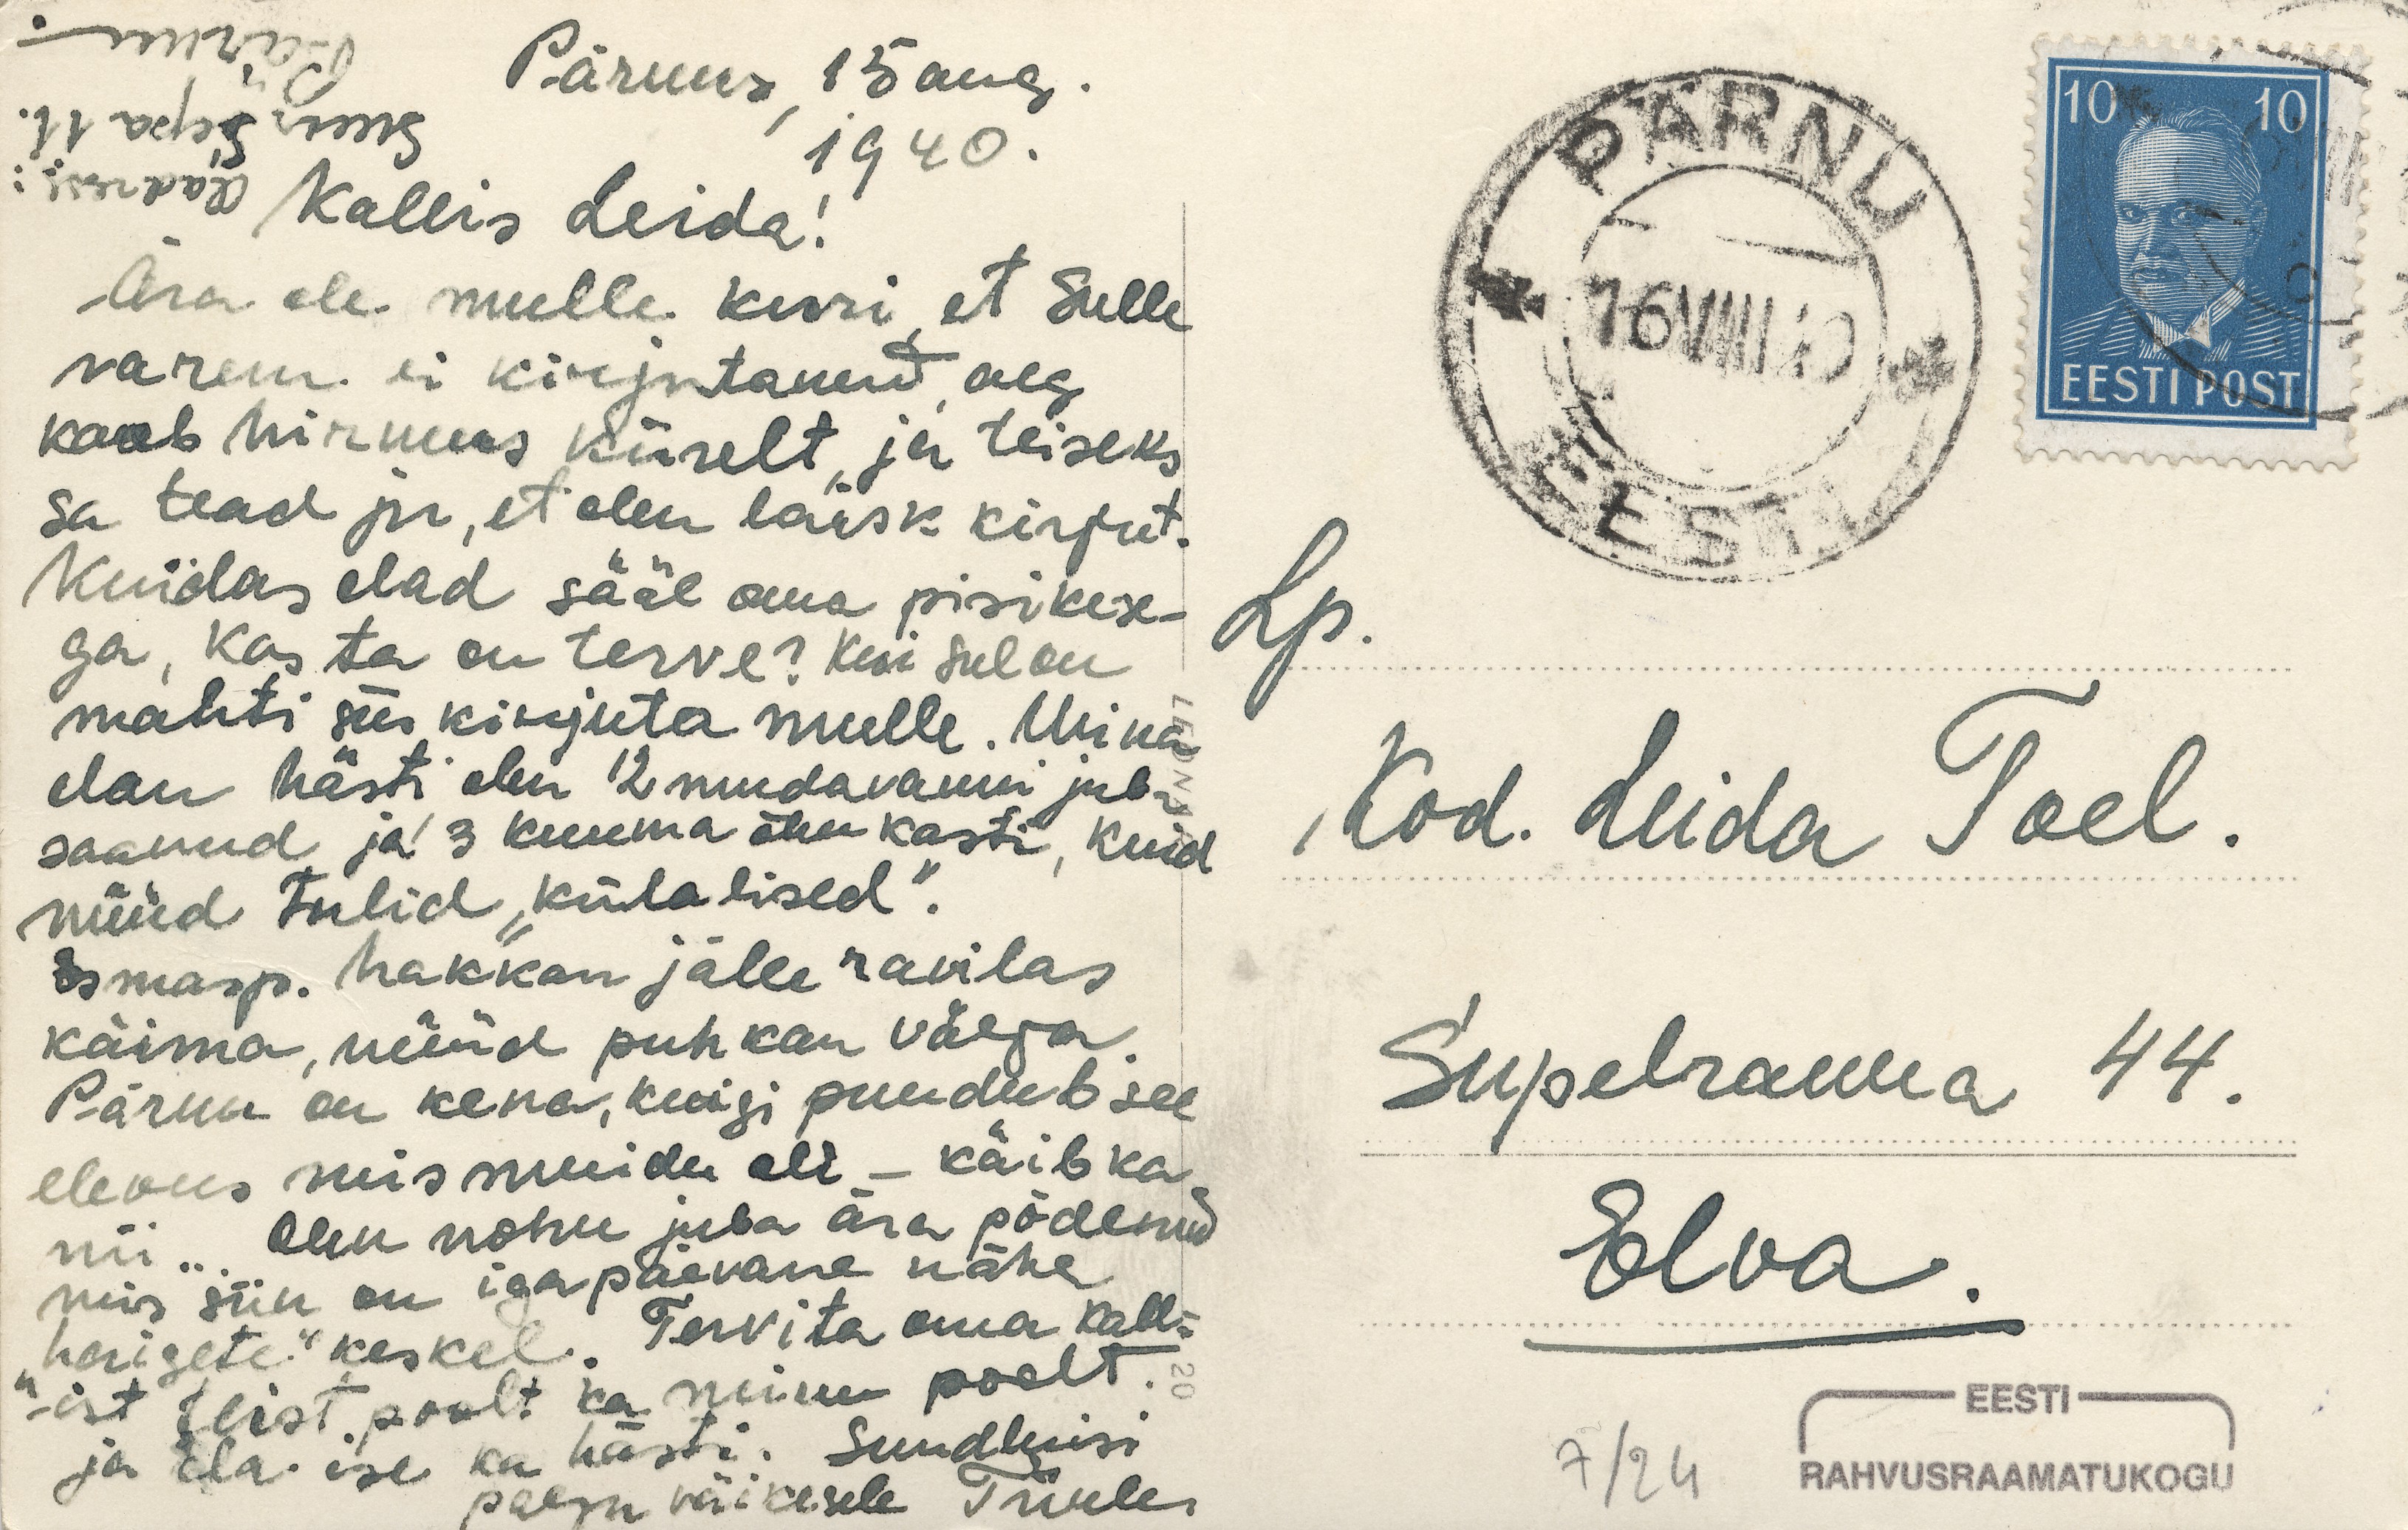 Pärnus, 15 aug.
1940.
Aadress:
Suur Sepa 11.
Pärnu
Kallis Leida!
Ära ole mulle kuri, et Sulle
varem ei kirjutanud, aeg
kaob hirmus kiirelt, ja teiseks
sa tead ju, et olen laisk kirjut.
Kuidas elad sääl oma pisikese-
ga, kas ta on terve? Kui sul on
mahti siis kirjuta mulle. Mina
elan hästi olen 12 mudavanni juba
saanud ja 3 kuuma õhu kasti, kuid
nüüd tulid „külalised".
Esmasp. hakkan jälle ravilas
käima, nüüd puhkan välja.
Pärnu on kena, kuigi puudub see
elevus mis muidu oli – käib ka
nii... Olen nohu juba ära põdenud
mis siin on igapäevane nähe
„haigete" keskel. Tervita oma kalli-
-ist teist poolt ka minu poolt.
ja ela ise ka hästi. Suudlusi
palju väikesele
PÄRNU
16 VIII 40
EESTI
10 10
EESTI POST
Lp.
Kod. Leida Toel.
Supelranna 44.
Elva.
20
7/24
EESTI
RAHVUSRAAMATUKOGU